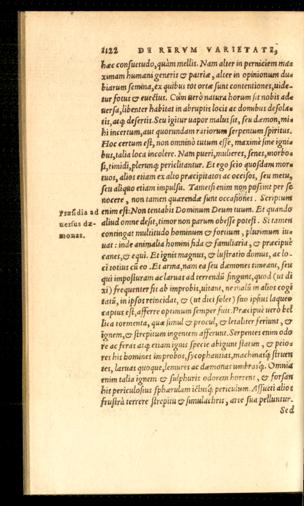 1122 DE RERVM VARIETATE,
hæc consuetudo, quàm mellit. Nam alter in perniciem ma
ximam humani generis & patriæ, alter in opinionum du
biarum semina, ex quibus tot ortæ sunt contentiones, uide
tur fotus & euectus. Cùm uerò natura horum sit nobis ad
uersa, libenter habitat in abruptis locis ac domibus desola
tis, atq; desertis. Seu igitur uapor malus sit, seu dæmon, mi
hi incertum, aut quorundam rariorum serpentum spiritus.
Hoc certum est, non omninò tutum esse, maximè sine ignia
bus, talia loca incolere. Nam pueri, mulieres, senes, morbo
si, timidi, plerunq; periclitantur. Et ego scio quosdam mor
tuos, alios etiam ex alio præcipitatos ac occisos, seu metu,
seu aliquo etiam impulsu. Tametsi enim non possint per se
nocere, non tamen quærendæ sunt occasiones. Scriptum
Præsidia ad
uersus dæ
monas.
enim est: Non tentabis Dominum Deum tuum. Et quando
aliud omne desit, timor non parum obesse potest. Si tamen
contingat multitudo hominum & fortium, plurimum iu
uat: inde animalia homini fida & familiaria, & præcipuè
canes, & equi. Et ignis magnus, & lustratio domus, ac lo
ci totius cũ eo. Et arma, nam ea seu dæmones timeant, seu
qui imposturam ac laruas ad terrendũ fingunt, quod (ut di
xi) frequenter fit ab improbis, uitant, ne malũ in alios cogi
tatũ, in ipsos reincidat, & (ut dici solet) suo ipsius laqueo
capiat est, afferre optimum semper fuit. Præcipuè uerò bel
lica tormenta, quæ simul & procul, & letaliter feriunt, &
ignem, & strepitum ingentem afferunt. Serpentes enim odo
re ac feras atq; etiam ignis specie abigunt statim, & peio
res his homines improbos, sycophantas, machinasq; struen
tes, laruas quoque, lemures ac dæmonas umbrasq;. Omnia
enim talia ignem & sulphuris odorem horrent, & forsan
his periculosius sphærulam ictusq; periculum. Assueti alios
frustrà terrere strepitu & simulachris, arte sua pelluntur.
Sed